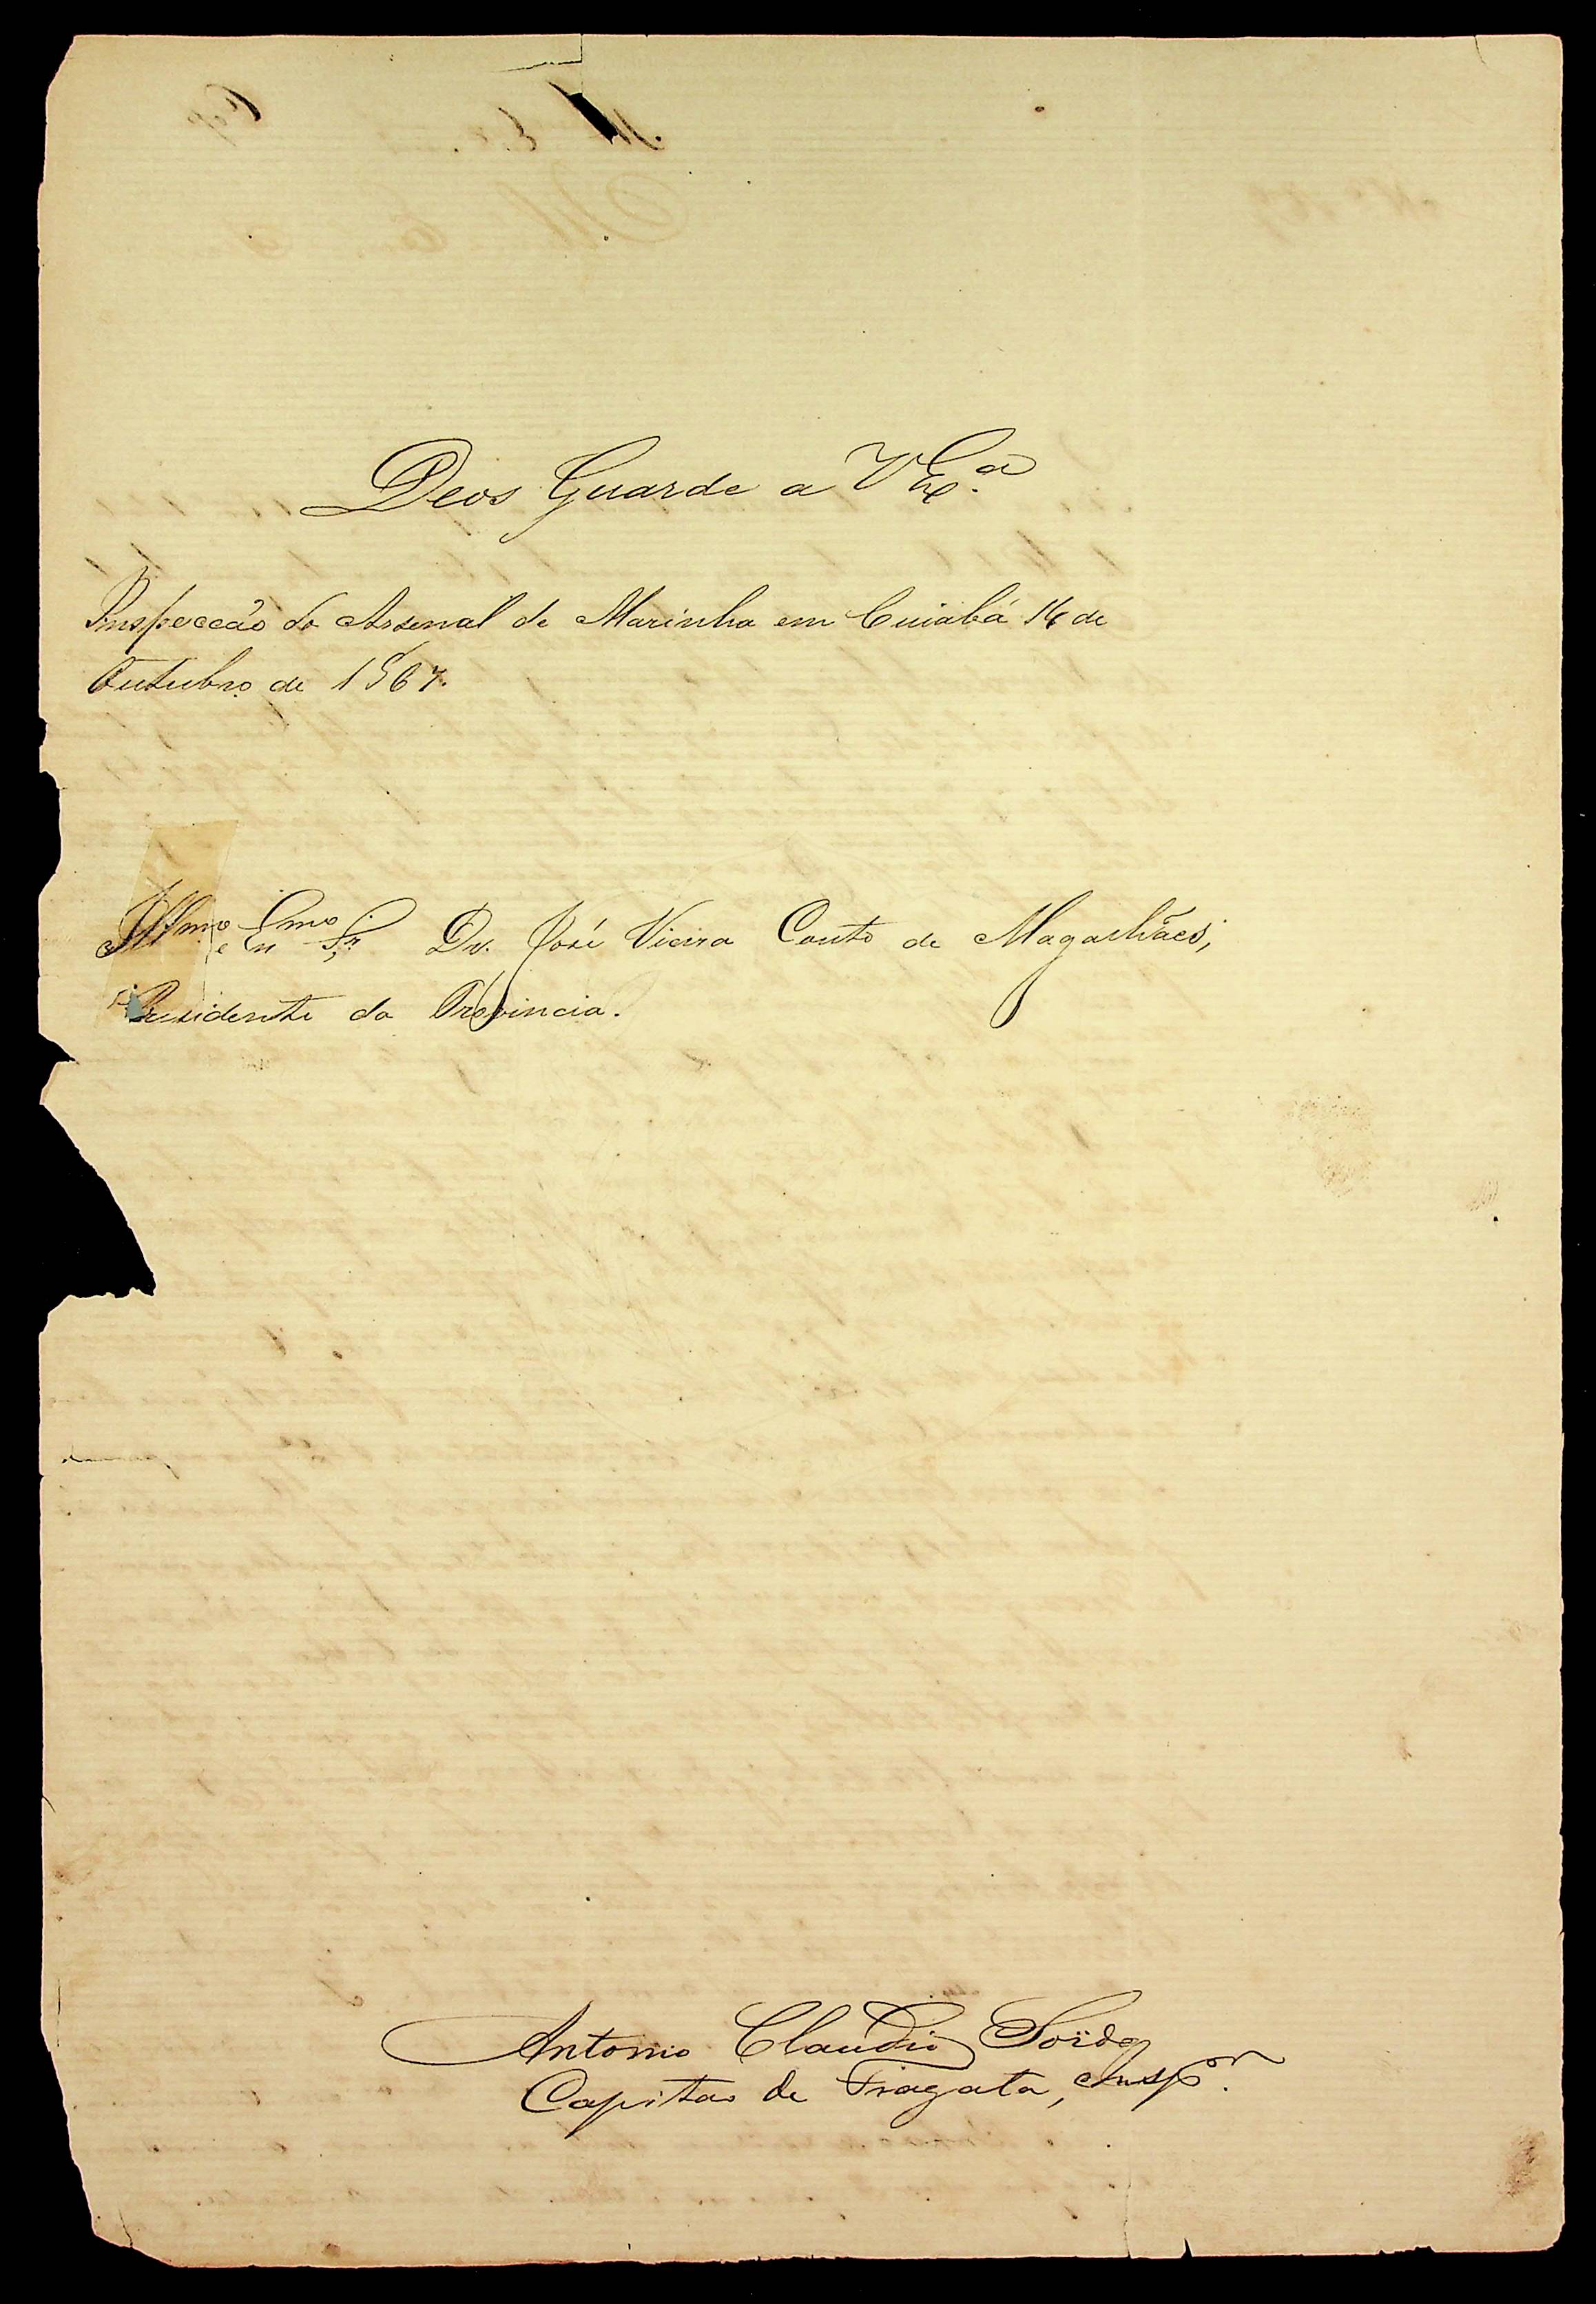 Deos Guarde a V Ex.ª
Inspecção do Arsenal de Marinha em Cuiabá 16 de
Outubro de 1867.
Illmo e Exmo Sr. Dr. José Vieira Couto de Magalhães,
Presidente da Provincia.
Antonio Claudio Soïdo
Capitão de Fragata, Inspor.